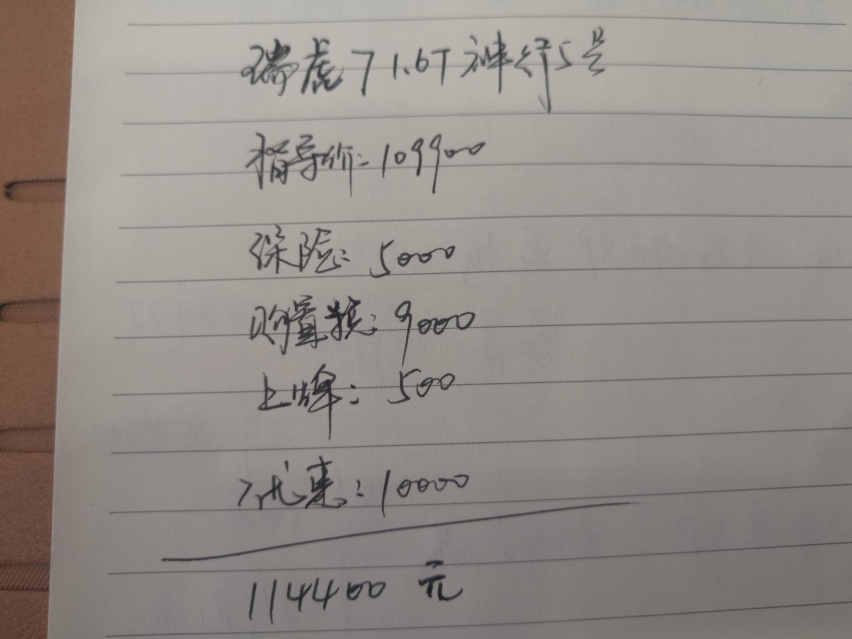 瑞虎7 1.6T 神行5号
指导价:109900
保险:5000
购置税:9000
上牌:500
优惠:10000
114400 元